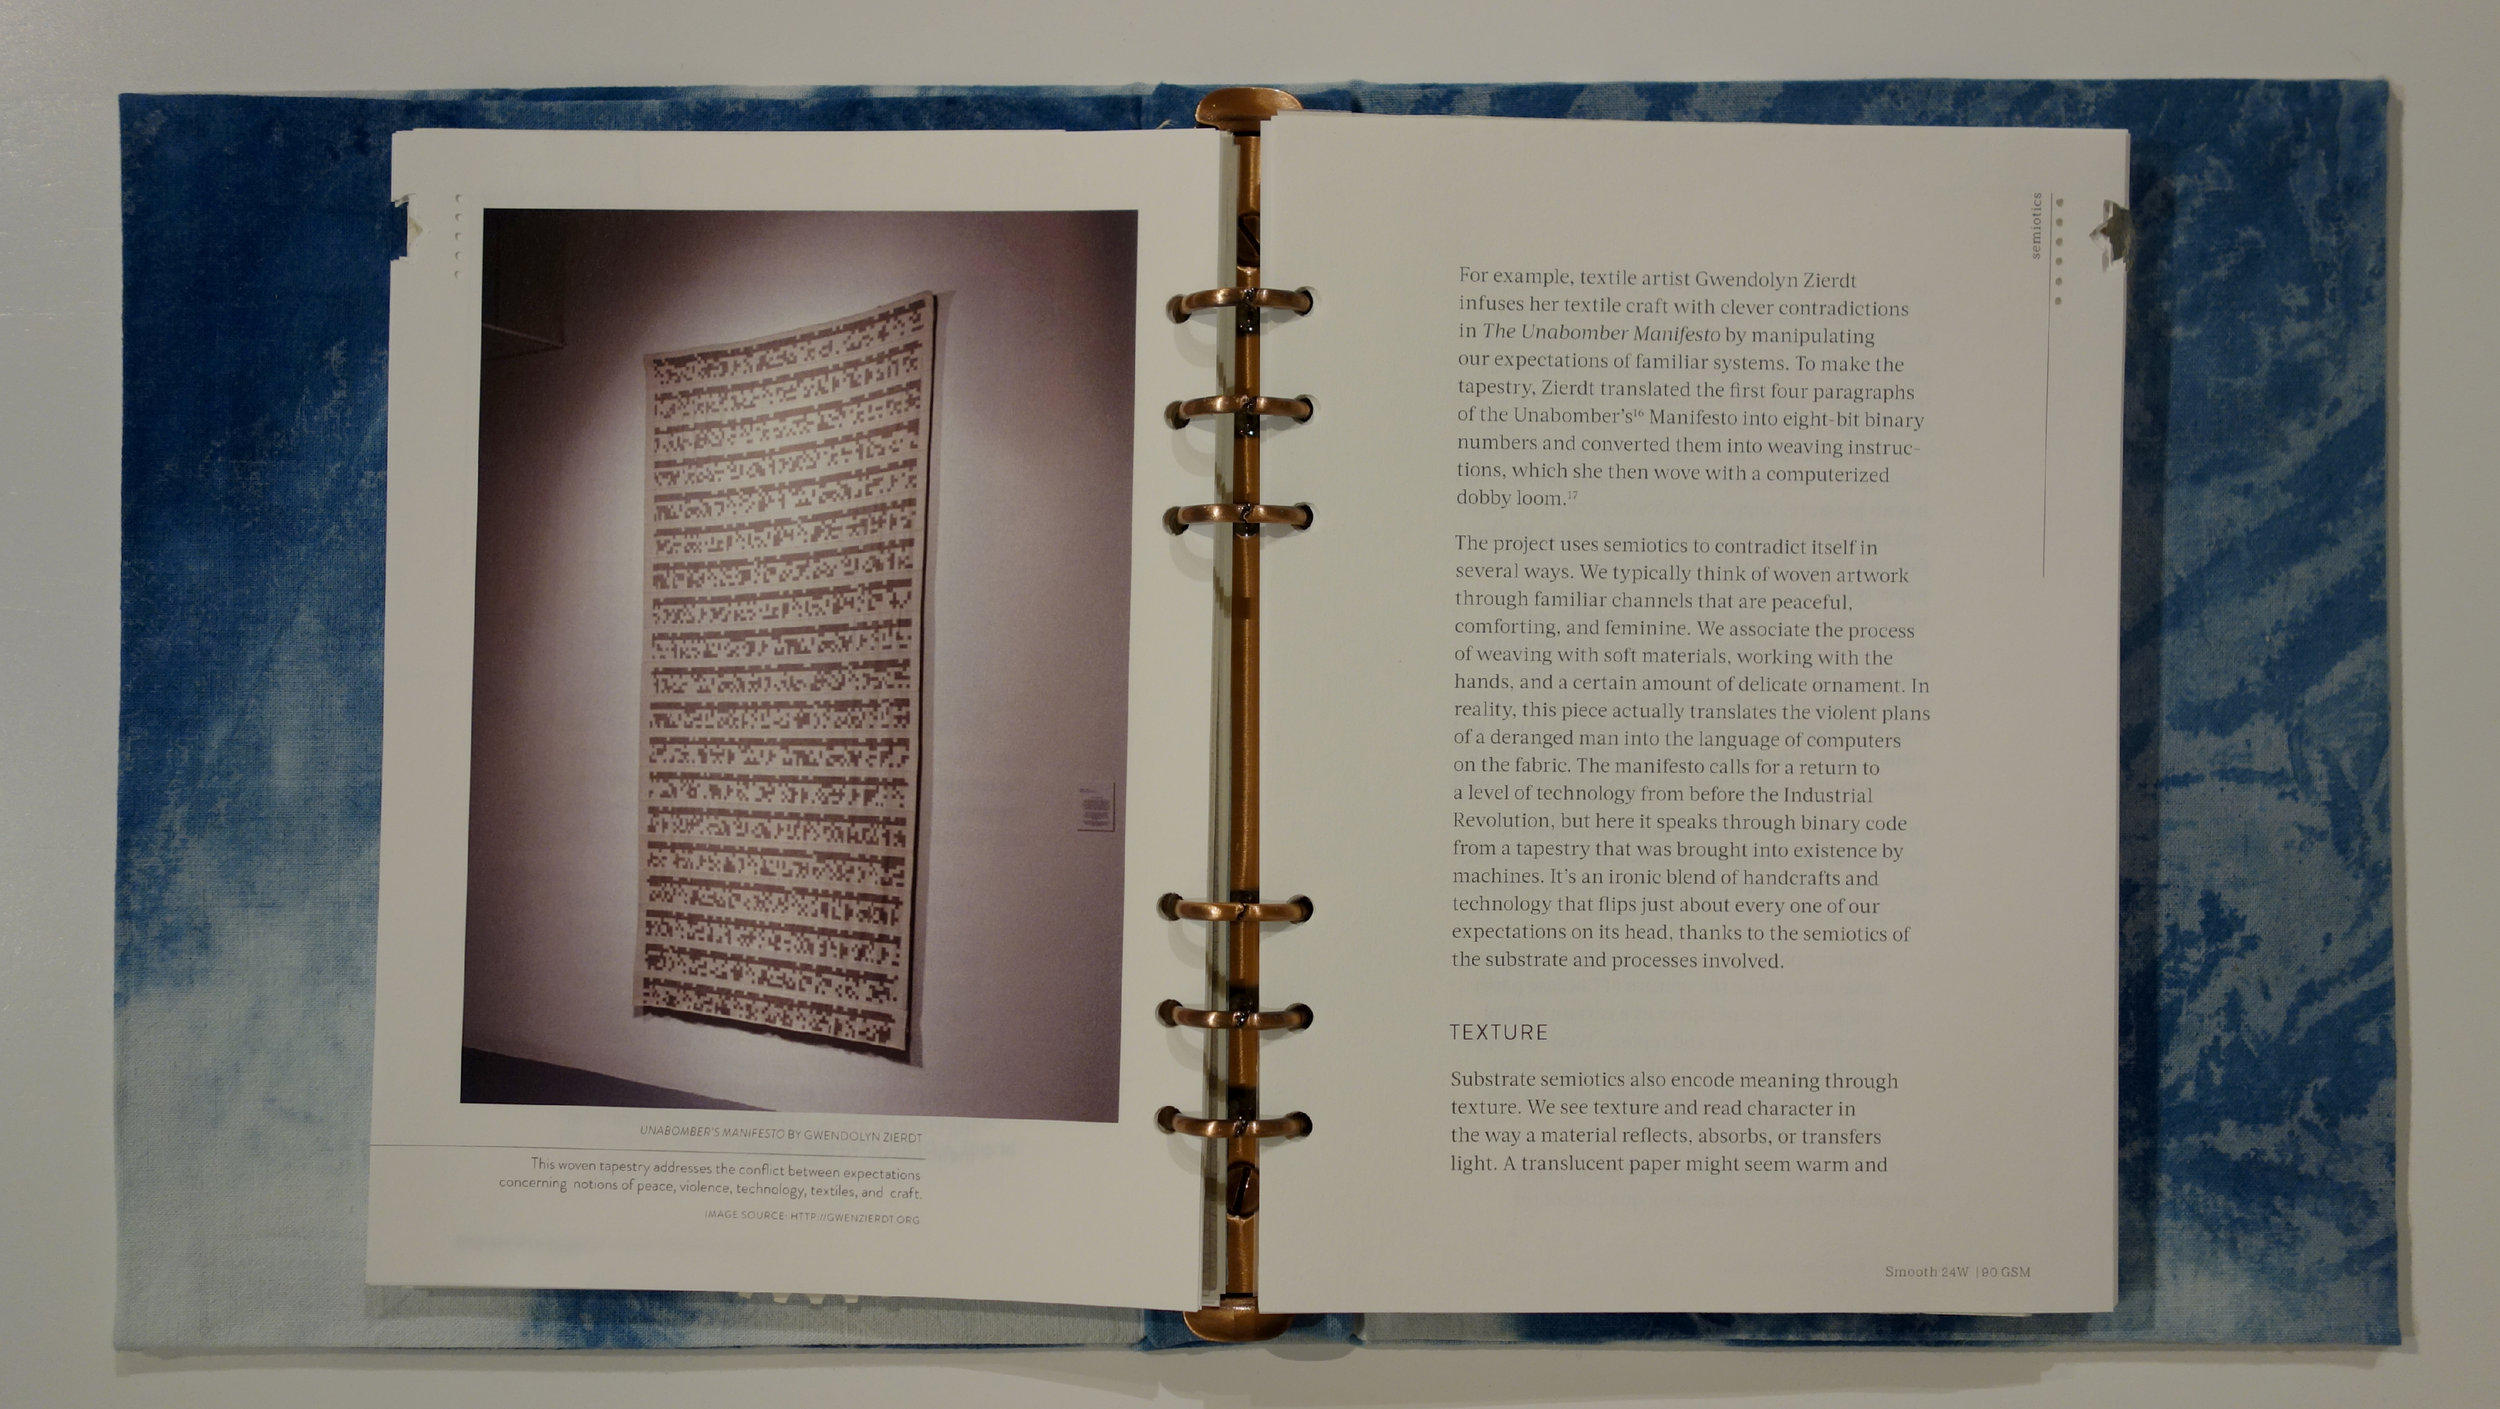 UNABOMBER'S MANIFESTO BY GWENDOLYN ZIERDT
This woven tapestry addresses the conflict between expectations
concerning notions of peace, violence, technology, textiles, and craft.
IMAGE SOURCE: HTTP://GWENZIERDT.ORG
semiotics
For example, textile artist Gwendolyn Zierdt
infuses her textile craft with clever contradictions
in The Unabomber Manifesto by manipulating
our expectations of familiar systems. To make the
tapestry, Zierdt translated the first four paragraphs
of the Unabomber's¹⁶ Manifesto into eight-bit binary
numbers and converted them into weaving instruc-
tions, which she then wove with a computerized
dobby loom.¹⁷
The project uses semiotics to contradict itself in
several ways. We typically think of woven artwork
through familiar channels that are peaceful,
comforting, and feminine. We associate the process
of weaving with soft materials, working with the
hands, and a certain amount of delicate ornament. In
reality, this piece actually translates the violent plans
of a deranged man into the language of computers
on the fabric. The manifesto calls for a return to
a level of technology from before the Industrial
Revolution, but here it speaks through binary code
from a tapestry that was brought into existence by
machines. It's an ironic blend of handcrafts and
technology that flips just about every one of our
expectations on its head, thanks to the semiotics of
the substrate and processes involved.
TEXTURE
Substrate semiotics also encode meaning through
texture. We see texture and read character in
the way a material reflects, absorbs, or transfers
light. A translucent paper might seem warm and
Smooth 24W | 90 GSM